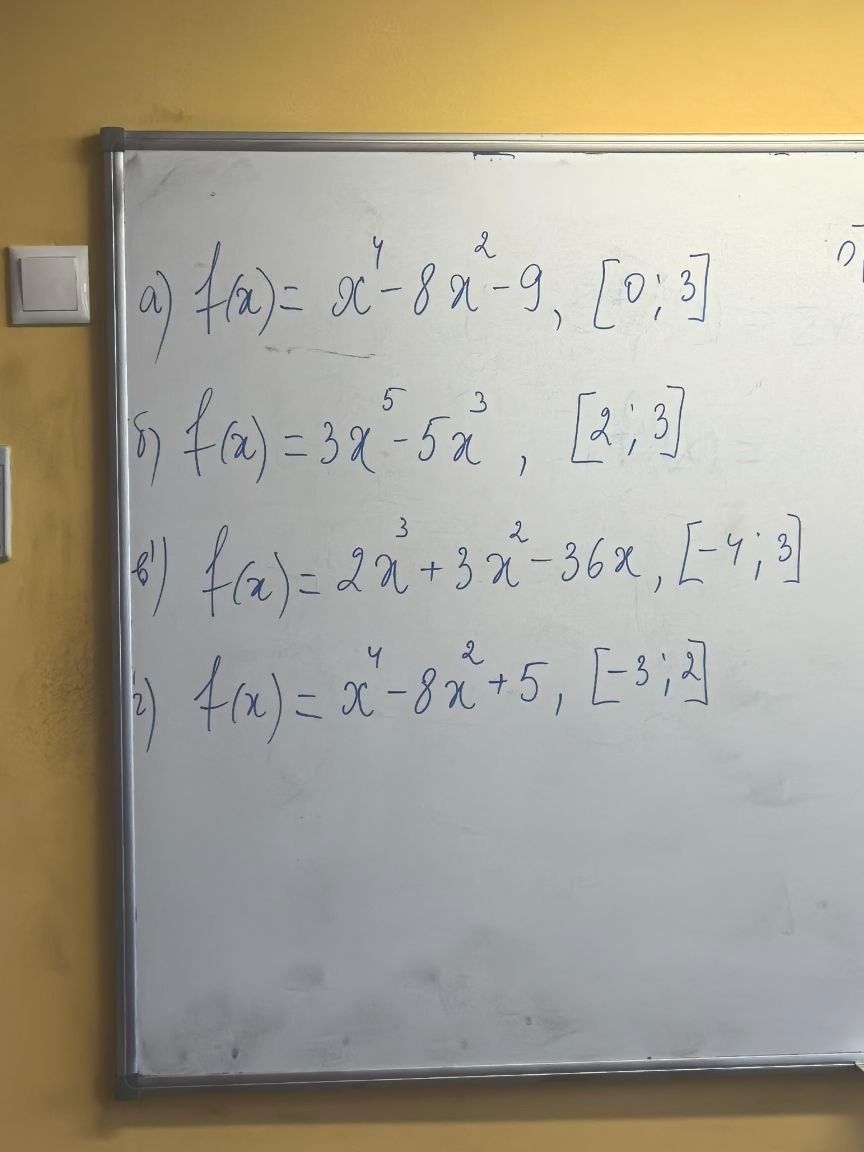 а) f(x) = x⁴ - 8x² - 9, [0; 3]
б) f(x) = 3x⁵ - 5x³, [2; 3]
в) f(x) = 2x³ + 3x² - 36x, [-4; 3]
г) f(x) = x⁴ - 8x² + 5, [-3; 2]